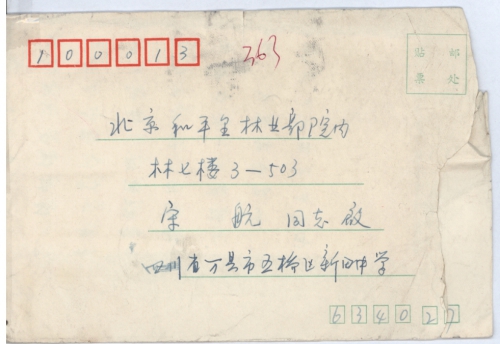 100013
363
贴 邮
票 处
北京和平里林业部院内
林七楼3—503
宋 航 同志 啟
四川省万县市五桥区新田中学
634027